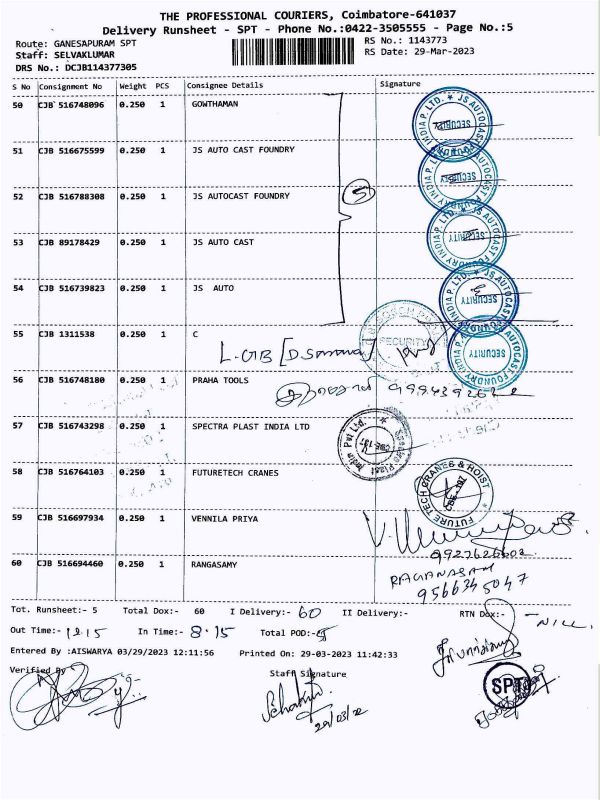 THE PROFESSIONAL COURIERS, Coimbatore-641037
Delivery Runsheet - SPT - Phone No.:0422-3505555 - Page No.:5
Route: GANESAPURAM SPT
RS No.: 1143773
Staff: SELVAKLUMAR
RS Date: 29-Mar-2023
DRS No.: DCJB114377305
S No Consignment No Weight PCS Consignee Details Signature
50 CJB 516748096 0.250 1 GOWTHAMAN
51 CJB 516675599 0.250 1 JS AUTO CAST FOUNDRY
52 CJB 516788308 0.250 1 JS AUTOCAST FOUNDRY
5
53 CJB 89178429 0.250 1 JS AUTO CAST
54 CJB 516739823 0.250 1 JS AUTO
JS AUTOCAST FOUNDRY INDIA P. LTD. ★
SECURITY
SECURITY
SECURITY
SECURITY
SECURITY
55 CJB 1311538 0.250 1 C
SECURITY
56 CJB 516748180 0.250 1 PRAHA TOOLS
57 CJB 516743298 0.250 1 SPECTRA PLAST INDIA LTD
Spectra Plast India Pvt Ltd.
58 CJB 516764103 0.250 1 FUTURETECH CRANES
FUTURE TECH CRANES & HOIST
59 CJB 516697934 0.250 1 VENNILA PRIYA
60 CJB 516694460 0.250 1 RANGASAMY
9566345047
Tot. Runsheet:- 5 Total Dox:- 60 I Delivery:- 60 II Delivery:- RTN Dox:- NILL
Out Time:- 12.15 In Time:- 8.15 Total POD:- 5
Entered By :AISWARYA 03/29/2023 12:11:56 Printed On: 29-03-2023 11:42:33
Verified By Staff Signature
SPT